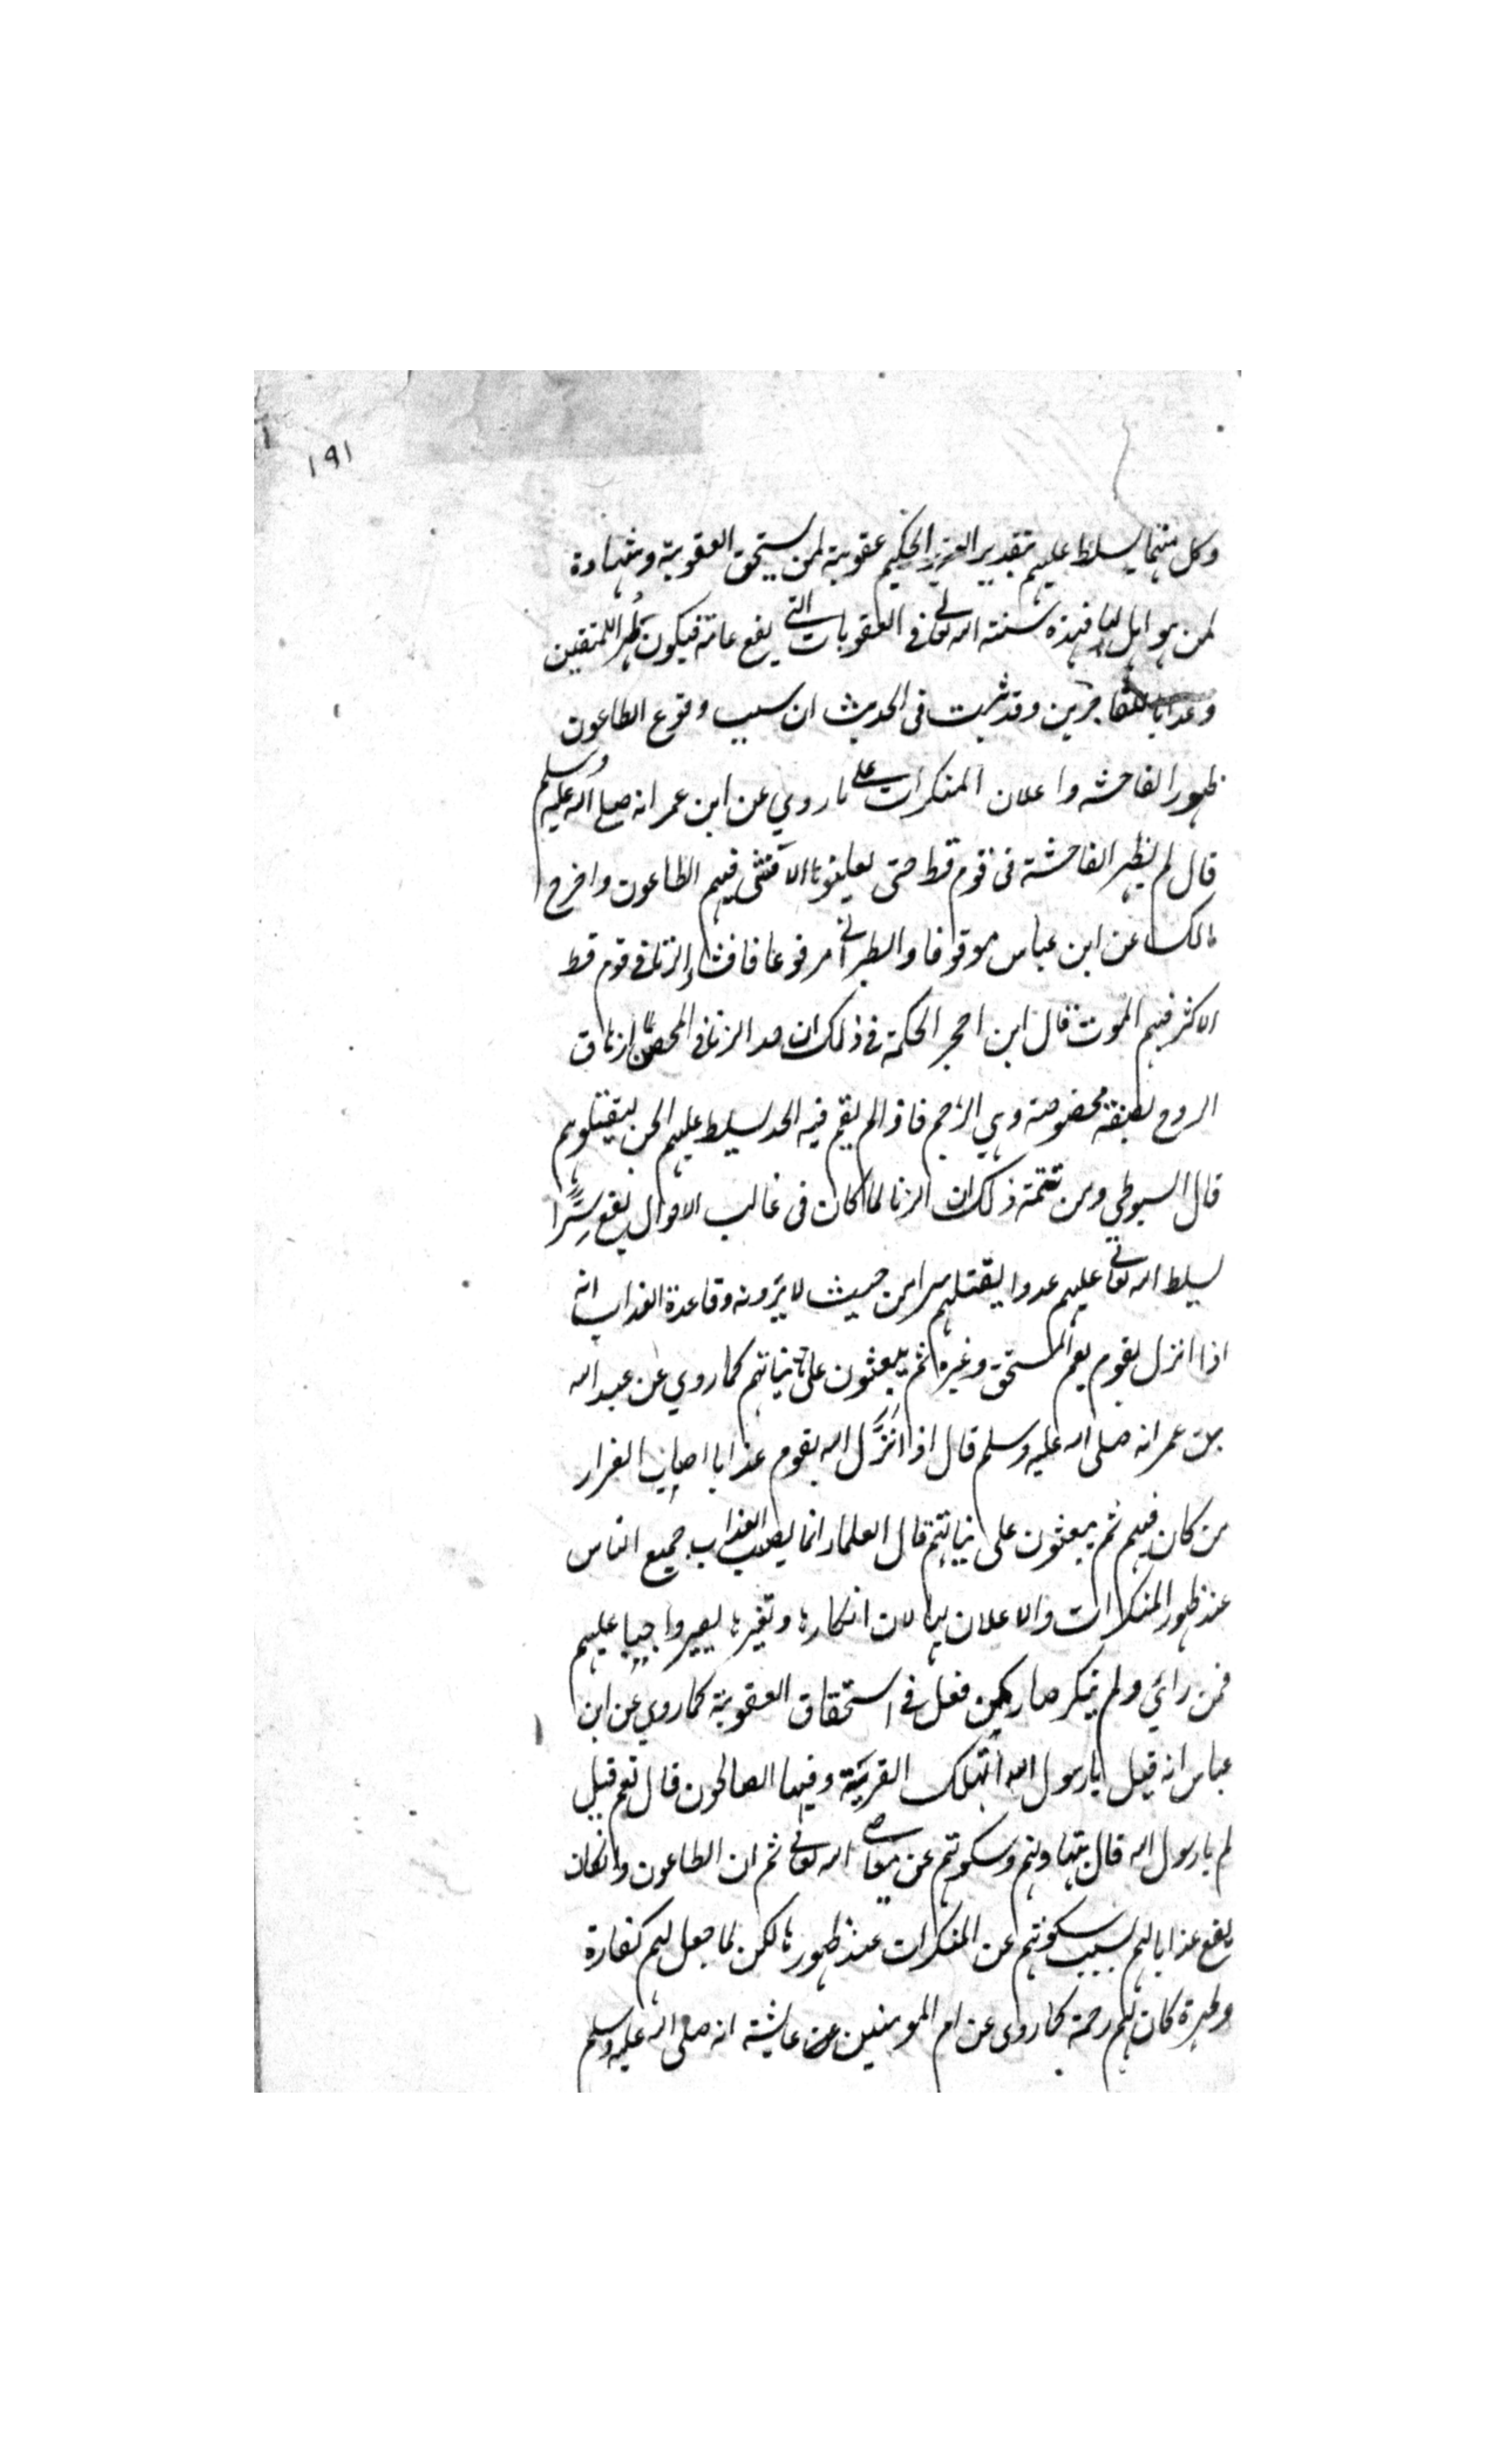 ١٩١
وكل منهما يسلط عليهم بتقدير العزيز الحكيم عقوبة لمن يستحق العقوبة وشهادة
لمن هو اهل لها فهذه سنته الله تعالى في العقوبات التي يقع عامة فيكون طهرا للمتقين
وعذابا للفاجرين وقد ثبت في الحديث ان سبب وقوع الطاعون
ظهور الفاحشه واعلان المنكرات على ما روي عن ابن عمر انه صلى الله عليه وسلم
قال لم يظهر الفاحشة في قوم قط حتى يعلنوا بها الا فشى فيهم الطاعون واخرج
مالك عن ابن عباس موقوفا والطبراني مرفوعا ما فشاء الزنا في قوم قط
الا كثر فيهم الموت قال ابن احجر الحكمة في ذلك ان حد الزنا في المحصن ازهاق
الروح بصفة مخصوصة وهي الرجم فاذا لم يقم فيه الحد يسلط عليهم الجن ليقتلوهم
قال السيوطي ومن تتمة ذلك ان الزنا لما كان في غالب الاحوال يقع سِرًّا
يسلط الله تعالى عليهم عدوا يقتلهم سرا من حيث لا يرونه وقاعدة العذاب انه
اذا انزل بقوم يعم المستحق وغيره ثم يبعثون على نياتهم كما روي عن عبد الله
بن عمر انه صلى الله عليه وسلم قال اذا انزل الله بقوم عذابا اصاب العذاب
من كان فيهم ثم يبعثون على نياتهم قال العلماء انما يصيب العذاب جميع الناس
عند ظهور المنكرات والاعلان بها لان انكارها وتغيرها يصير واجبا عليهم
فمن رائي ولم ينكر صار كمن فعل في استحقاق العقوبة كما روي عن ابن
عباس انه قيل يا رسول الله اتهلك القرية وفيها الصالحون قال نعم قيل
لم يا رسول الله قال بتهاونهم وسكوتهم عن معاصي الله تعالى ثم ان الطاعون وانكان
يقع عذابا لهم بسبب سكوتهم عن المنكرات عند ظهورها لكن لما جعل لهم كفارة
وطهرة كان لهم رحمة كما روى عن ام المومنين عن عايشة انه صلى الله عليه وسلم